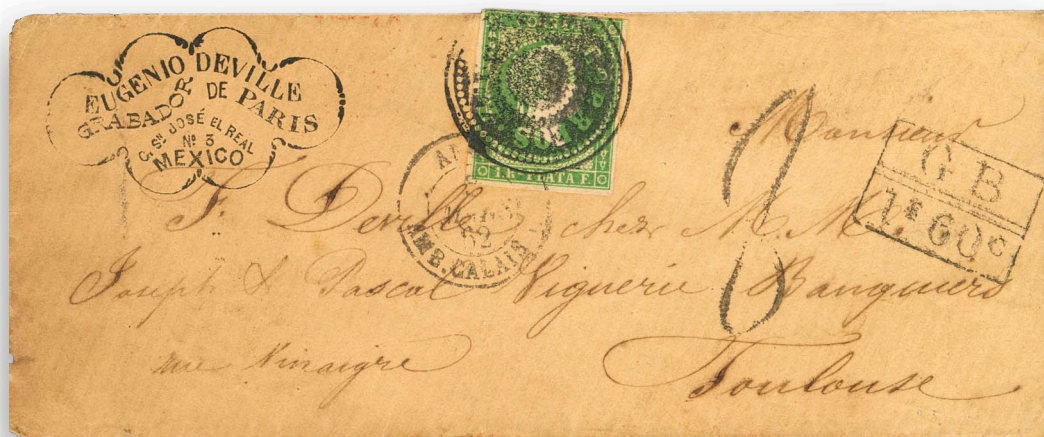 EUGENIO DEVILLE
GRABADOR DE PARIS
C. Sn JOSÉ EL REAL
Nº 3
MEXICO
1. Rl PLATA F.
62
AMB. CALAIS
GB
1F 60c
8
Monsieur
F. Deville chez M.M.
Joseph & Pascal Viguerie Banquiers
rue Vinaigre
Toulouse